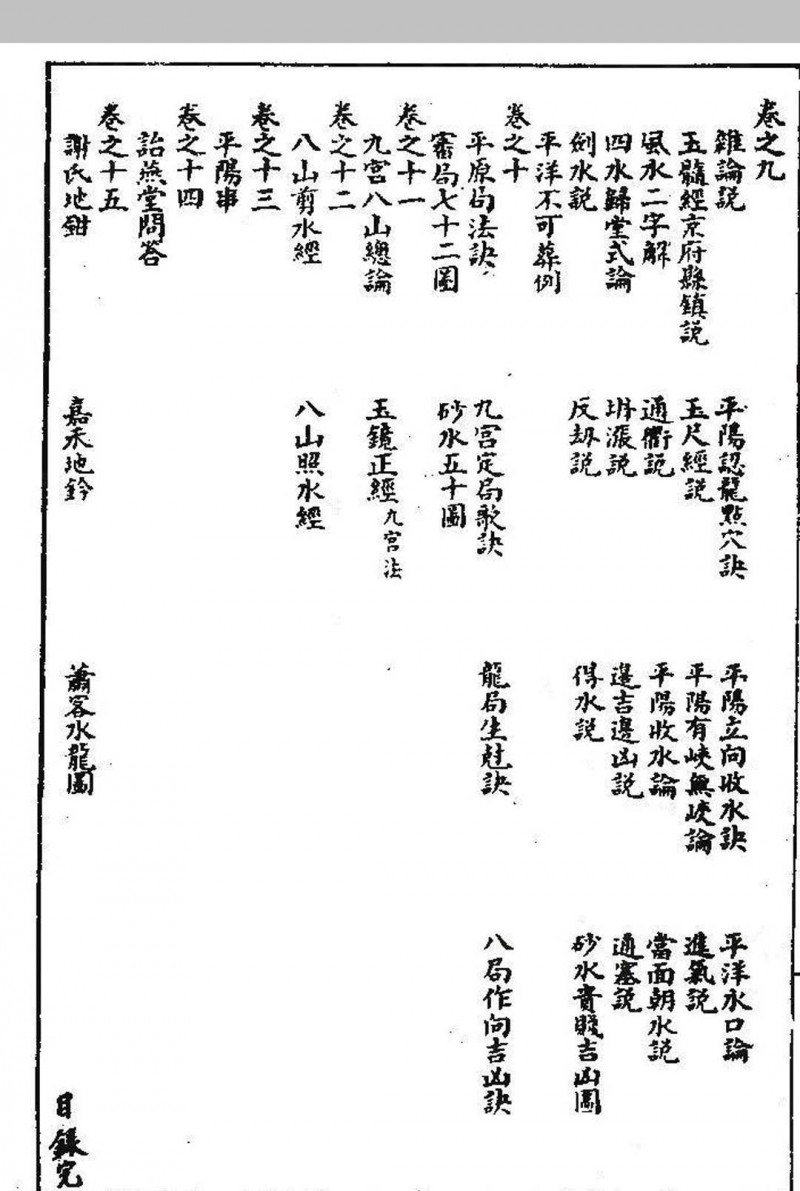 卷之九
雜論説 平陽認龍點穴訣 平陽立向收水訣 平洋水口論
玉髓經京府縣鎮説 玉尺經説 平陽有峽無峽論 進氣説
風水二字解 通衢説 平陽收水論 當面朝水説
四水歸堂式論 坍漲説 邊吉邊凶説 通塞説
劍水説 反刼説 得水説 砂水貴賤吉凶圖
平洋不可葬例
卷之十
平原局法訣 九宮定局歌訣 龍局生尅訣 八局作向吉凶訣
審局七十二圖 砂水五十圖
卷之十一
九宮八山總論 玉鏡正經九宮法
卷之十二
八山剪水經 八山照水經
卷之十三
平陽事
卷之十四
詒燕堂問答
卷之十五
謝氏地鉗 嘉禾地鈐 蕭客水龍圖
目錄完